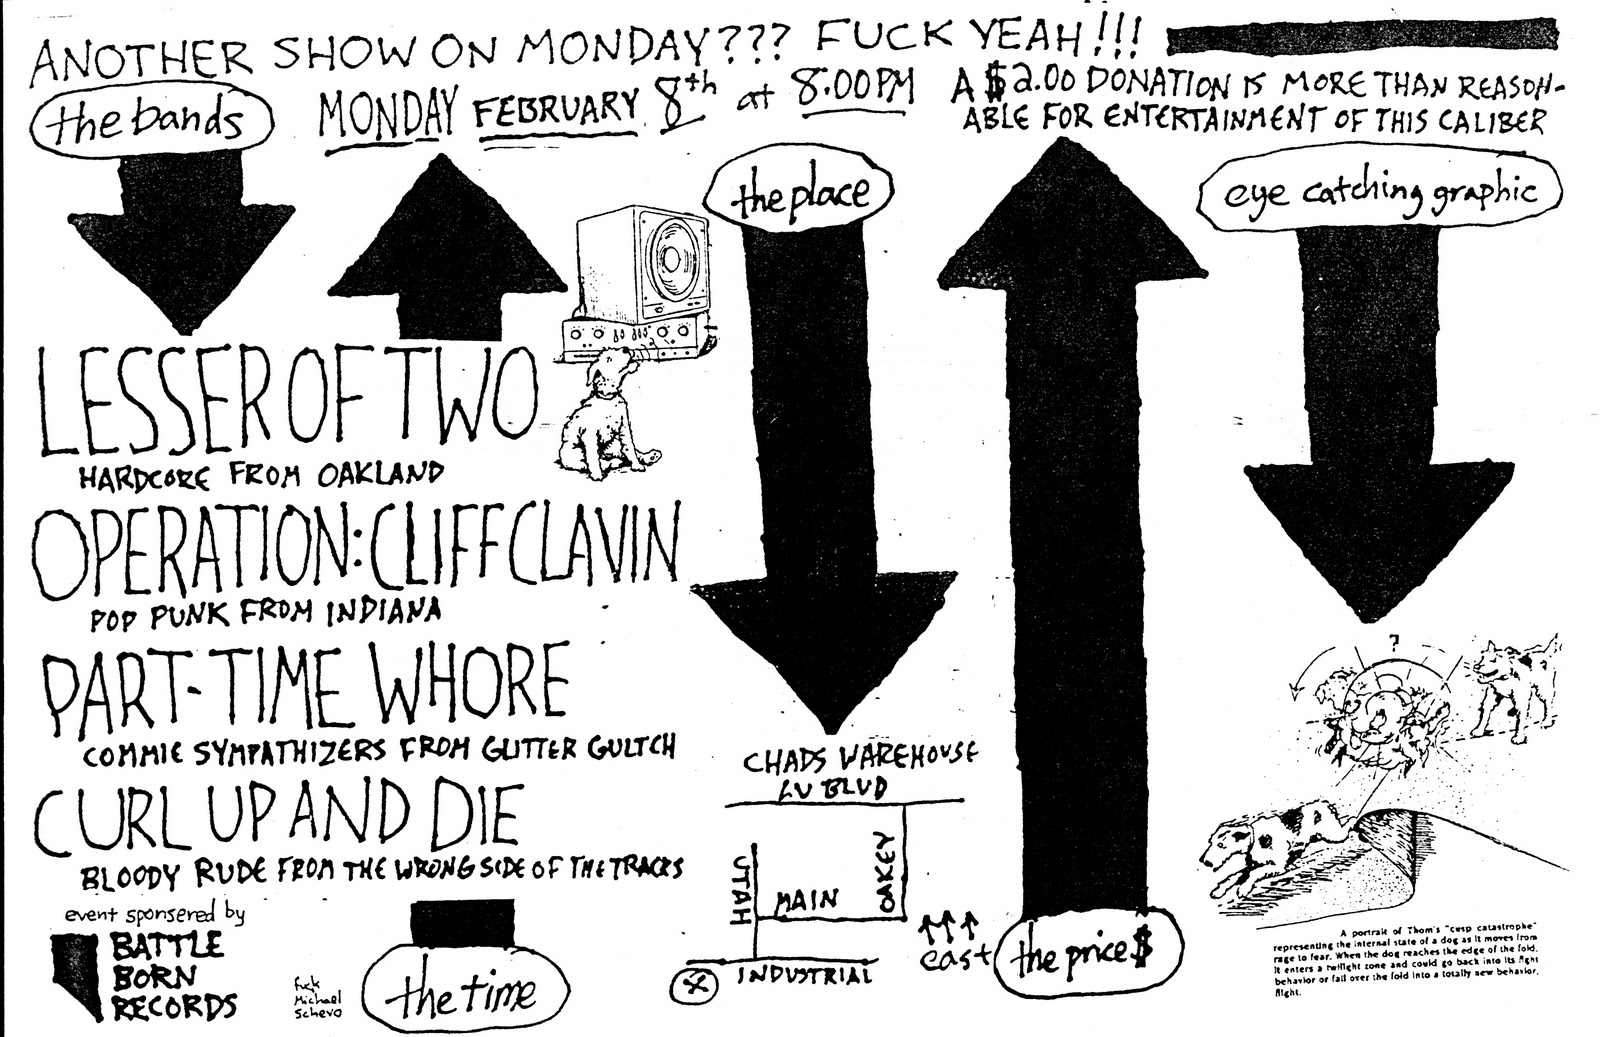 ANOTHER SHOW ON MONDAY??? FUCK YEAH!!!
the bands
MONDAY FEBRUARY 8th at 8:00PM
A $2.00 DONATION IS MORE THAN REASON-
ABLE FOR ENTERTAINMENT OF THIS CALIBER
the place
eye catching graphic
LESSER OF TWO
HARDCORE FROM OAKLAND
OPERATION: CLIFF CLAVIN
POP PUNK FROM INDIANA
PART-TIME WHORE
COMMIE SYMPATHIZERS FROM GLITTER GULTCH
CURL UP AND DIE
BLOODY RUDE FROM THE WRONG SIDE OF THE TRACKS
event sponsered by
BATTLE
BORN
RECORDS
fuck
Michael
Schevo
the time
CHADS WAREHOUSE
LV BLVD
UTAH
MAIN
OAKEY
INDUSTRIAL
east
the price$
?
A portrait of Thom's "cusp catastrophe"
representing the internal state of a dog as it moves from
rage to fear. When the dog reaches the edge of the fold,
it enters a twilight zone and could go back into its fight
behavior or fall over the fold into a totally new behavior,
flight.